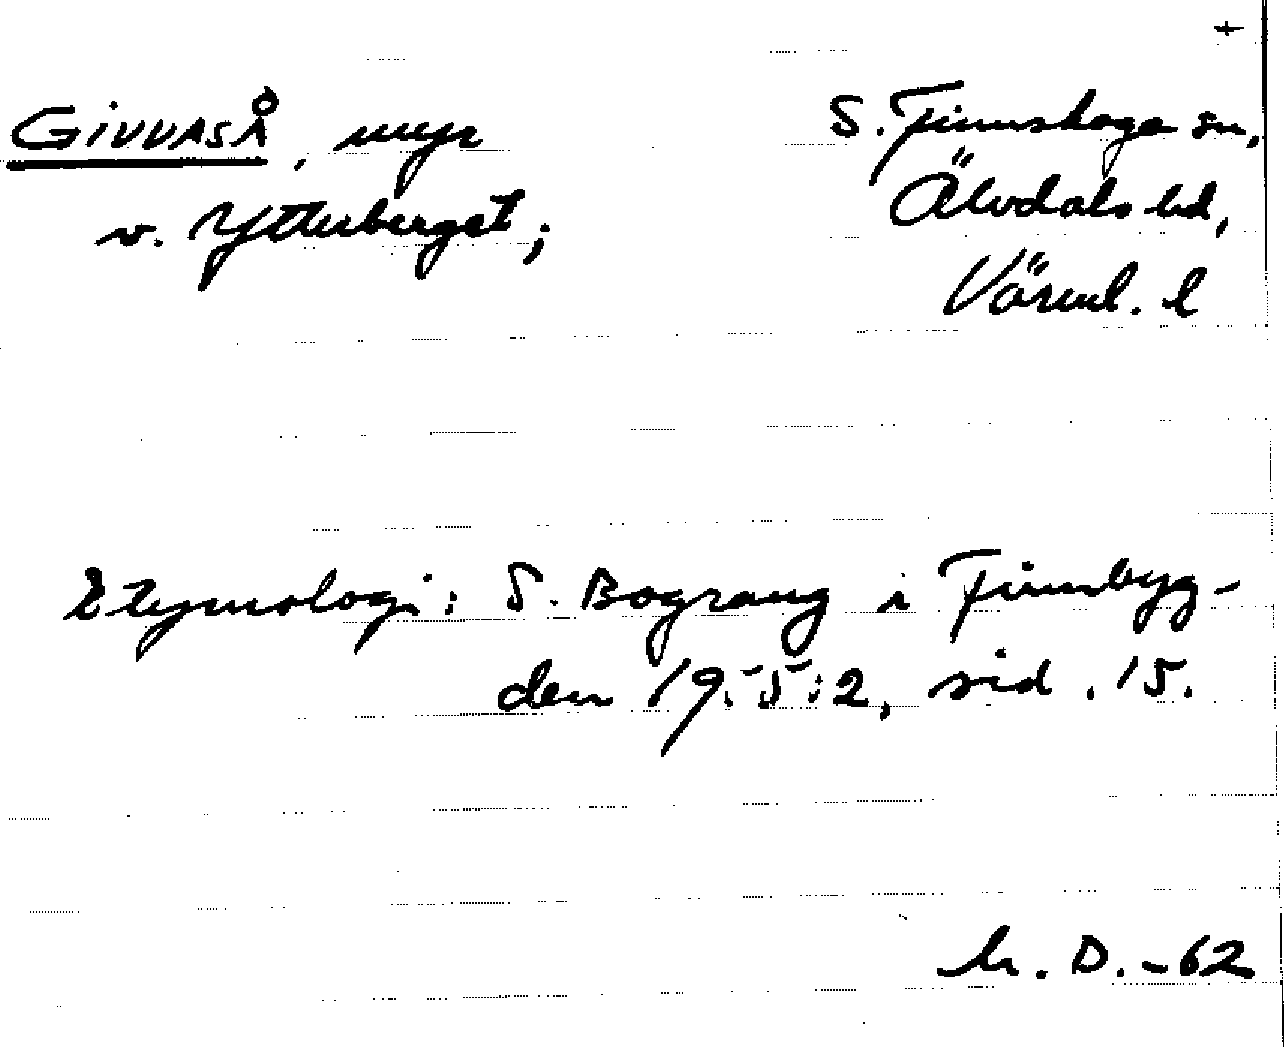 +
GIVVASÅ, myr
v. Ytterberget;
S. Finnskoga sn,
Älvdals hd,
Värml. l
Etymologi: S. Bograng i Finnbyg-
den 1955:2, sid. 15.
M. D. -62